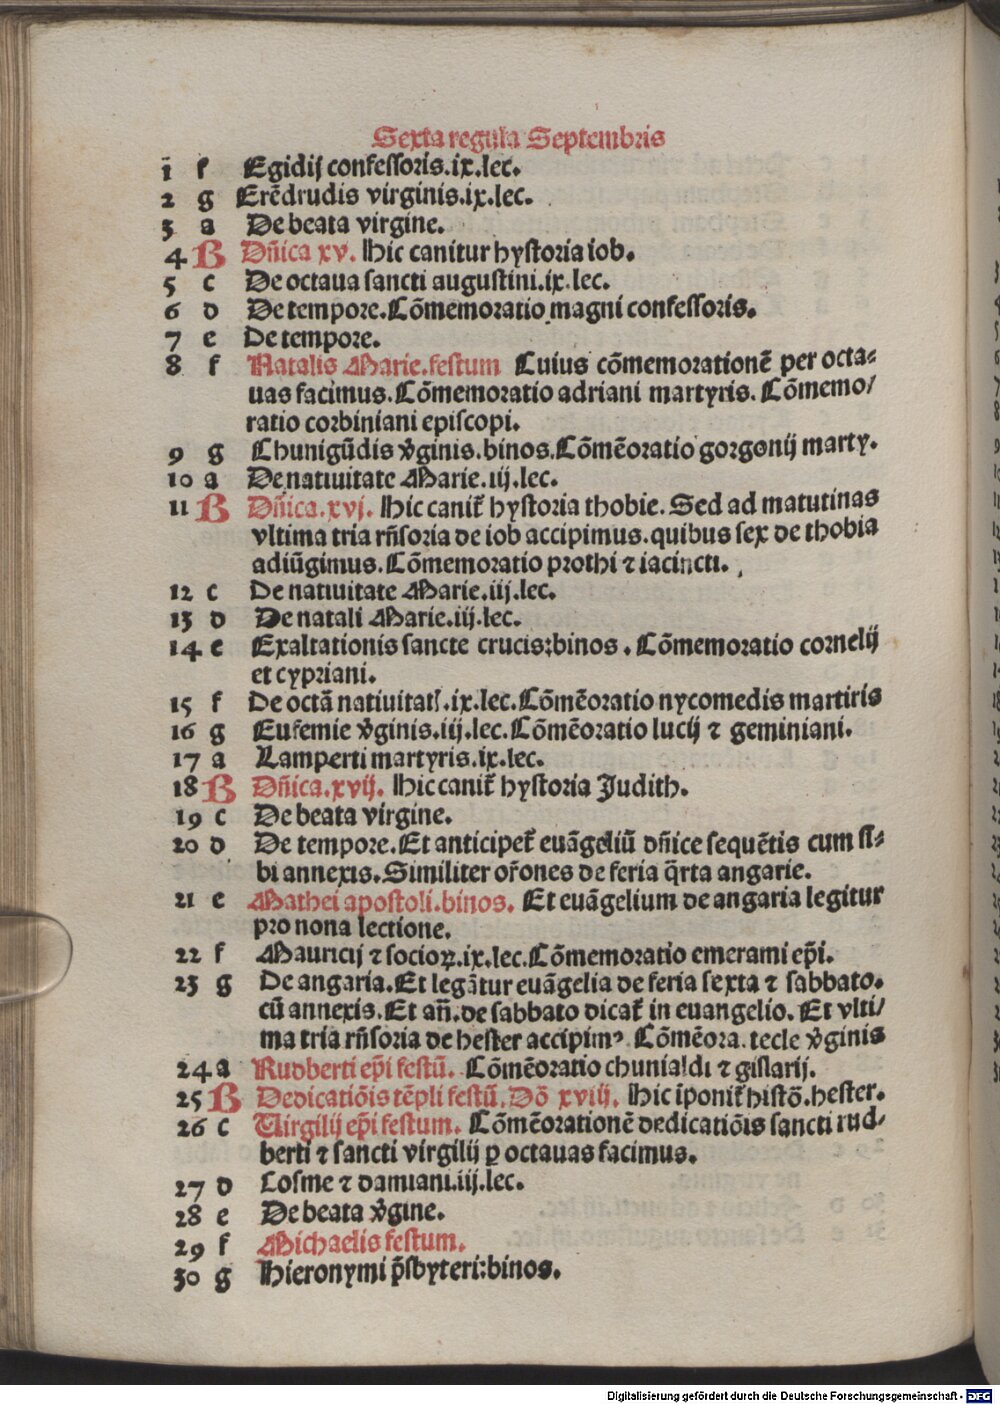 Sexta regula Septembris
1 f Egidij confessoris.ix.lec.
2 g Erẽdrudis virginis.ix.lec.
3 a De beata virgine.
4 B Dñica xv. Hic canitur hystoria iob.
5 c De octaua sancti augustini.ix.lec.
6 d De tempore.Cõmemoratio magni confessoris.
7 e De tempore.
8 f Natalis Marie.festum Cuius cõmemorationẽ per octa⸗
uas facimus.Cõmemoratio adriani martyris. Cõmemo/
ratio corbiniani episcopi.
9 g Chunigũdis v̾ginis.binos.Cõmẽoratio gorgonij marty.
10 a De natiuitate Marie.iij.lec.
11 B Dñica.xvj. Hic canit̃ hystoria thobie. Sed ad matutinas
vltima tria rñsoria de iob accipimus.quibus sex de thobia
adiũgimus.Cõmemoratio prothi ⁊ iacincti.
12 c De natiuitate Marie.iij.lec.
13 d De natali Marie.iij.lec.
14 e Exaltationis sancte crucis:binos . Cõmemoratio cornelij
et cypriani.
15 f De octã natiuitatꝭ.ix.lec.Cõmẽoratio nycomedis martiris
16 g Eufemie v̾ginis.iij.lec.Cõmẽoratio lucij ⁊ geminiani.
17 a Lamperti martyris.ix.lec.
18 B Dñica.xvij. Hic canit̃ hystoria Judith.
19 c De beata virgine.
20 d De tempore.Et anticipet̃ euãgeliũ dñice sequẽtis cum si⸗
bi annexis.Similiter or̃ones de feria q̃rta angarie.
21 e Mathei apostoli.binos. Et euãgelium de angaria legitur
pro nona lectione.
22 f Mauricij ⁊ socioꝝ.ix.lec.Cõmemoratio emerami ep̃i.
23 g De angaria.Et legãtur euãgelia de feria sexta ⁊ sabbato.
cũ annexis.Et añ.de sabbato dicat̃ in euangelio. Et vlti/
ma tria rñsoria de hester accipimꝰ Cõmẽora.tecle v̾ginis
24 a Rudberti ep̃i festũ. Cõmẽoratio chunialdi ⁊ gislarij.
25 B Dedicatiõis tẽpli festũ. Dõ xviij. Hic ĩponit̃ histõ.hester.
26 c Virgilij ep̃i festum. Cõmẽorationẽ dedicatiõis sancti rud⸗
berti ⁊ sancti virgilij ꝑ octauas facimus.
27 d Cosme ⁊ damiani.iij.lec.
28 e De beata v̾gine.
29 f Michaelis festum.
30 g Hieronymi p̃sbyteri:binos.
Digitalisierung gefördert durch die Deutsche Forschungsgemeinschaft - DFG